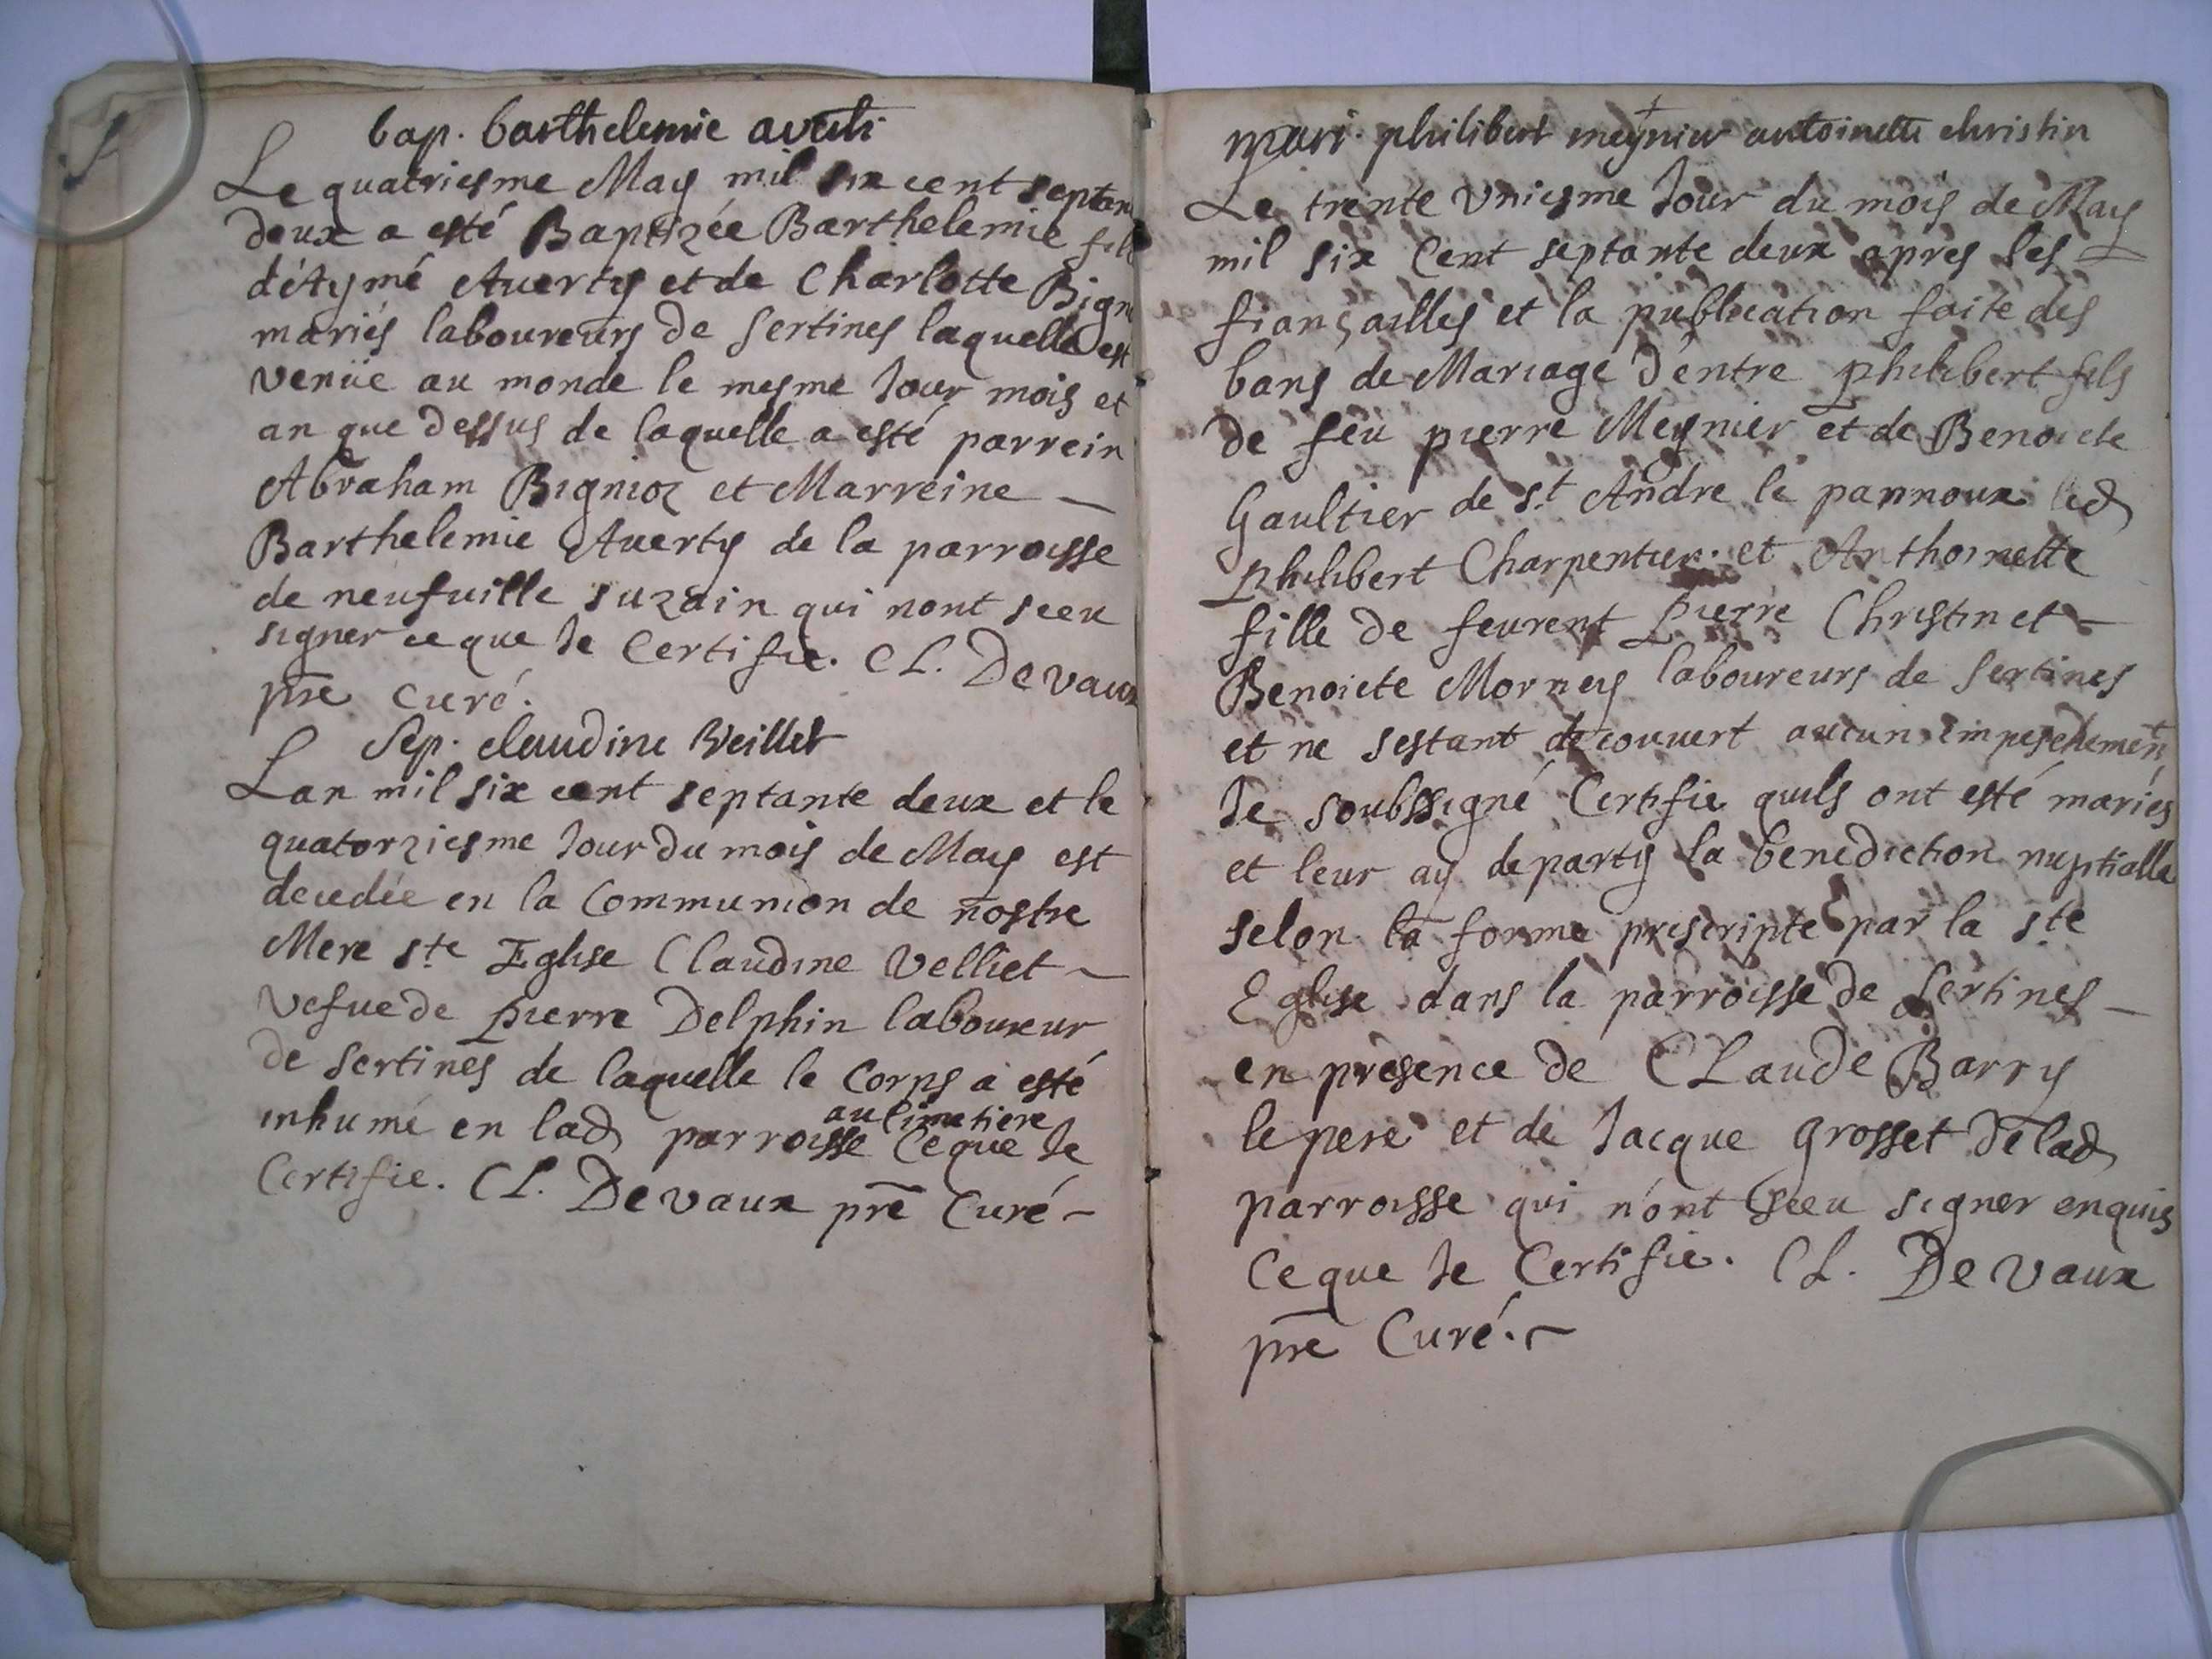 bap. barthelemie averti
Le quatriesme May mil six cent septan
deux a esté Baptizée Barthelemie fill
d'Aymé Auerty et de Charlotte Bign
mariés laboureurs de Sertines laquelle est
venüe au monde le mesme Jour mois et
an que dessus de laquelle a esté parrein
Abraham Bignioz et Marreine
Barthelemie Auerty de la parroisse
de neufuille suzain qui nont sceu
signer ce que Je Certifie. CL. Devaux
pre curé.
Sep. claudine Veillet
Lan mil six cent septante deux et le
quatorziesme Jour du mois de May est
decedée en la Communion de nostre
Mere ste Eglise Claudine Velliet
vefue de pierre Delphin laboureur
de Sertines de laquelle le Corps a esté
inhumé en lad parroisse au Cimetiere Ce que Je
Certifie. CL. Devaux pre Curé
mari philibert meynier antoinette christin
Le trente vniesme Jour du mois de May
mil six Cent septante deux apres les
fiançailles et la publication faite des
bans de Mariage d'entre philibert fils
de feu pierre Meynier et de Benoiete
Gaultier de st Andre le pannoux led
philibert Charpentier et Anthoinette
fille de feurent pierre Christin et
Benoiete Morney laboureurs de Sertines
et ne sestant decouuert aucun empeschement
Je soubssigné Certifie quils ont esté mariés
et leur ay departy la benediction nuptialle
selon la forme prescripte par la ste
Eglise dans la parroisse de Sertines
en presence de CLaude Barry
le pere et de Jacque Grosset de lad
parroisse qui n'ont sceu signer enquis
Ce que Je Certifie. CL. Devaux
pre Curé.